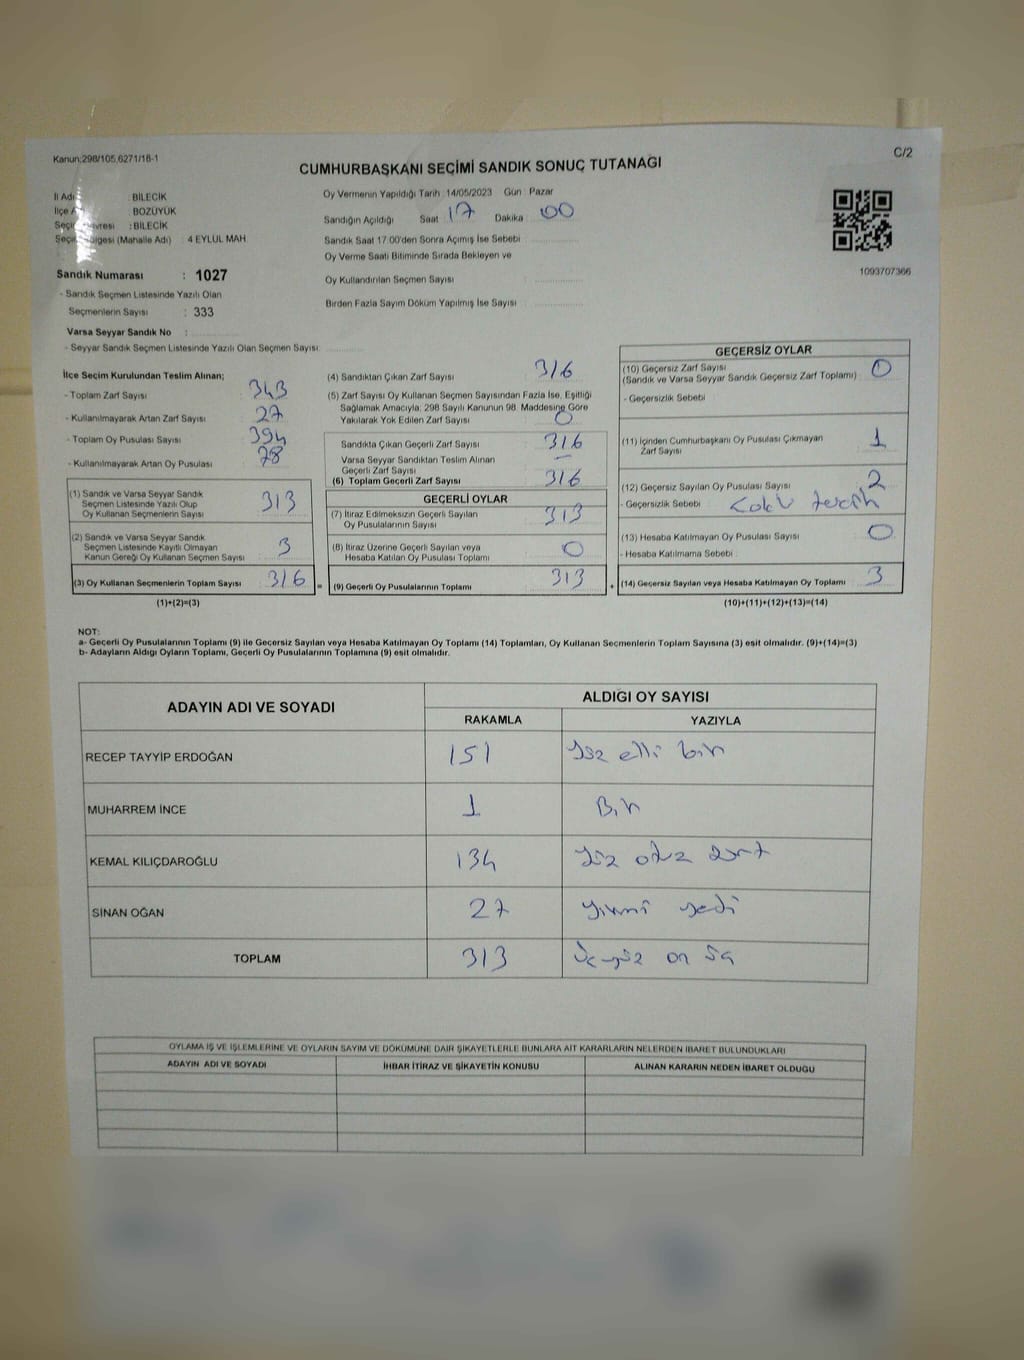 Kanun:298/105,6271/18-1
C/2
CUMHURBAŞKANI SEÇİMİ SANDIK SONUÇ TUTANAĞI
İl Adı : BİLECİK
İlçe A : BOZÜYÜK
Seçi resi : BİLECİK
Seçi ölgesi (Mahalle Adı) : 4 EYLÜL MAH.
Sandık Numarası : 1027
- Sandık Seçmen Listesinde Yazılı Olan
Seçmenlerin Sayısı : 333
Varsa Seyyar Sandık No :
- Seyyar Sandık Seçmen Listesinde Yazılı Olan Seçmen Sayısı:
Oy Vermenin Yapıldığı Tarih : 14/05/2023 Gün : Pazar
Sandığın Açıldığı Saat 17 Dakika : 00
Sandık Saat 17:00'den Sonra Açılmış İse Sebebi :
Oy Verme Saati Bitiminde Sırada Bekleyen ve
Oy Kullandırılan Seçmen Sayısı :
Birden Fazla Sayım Döküm Yapılmış İse Sayısı :
1093707366
İlçe Seçim Kurulundan Teslim Alınan;
- Toplam Zarf Sayısı : 343
- Kullanılmayarak Artan Zarf Sayısı : 27
- Toplam Oy Pusulası Sayısı : 394
- Kullanılmayarak Artan Oy Pusulası : 78
(1) Sandık ve Varsa Seyyar Sandık
Seçmen Listesinde Yazılı Olup
Oy Kullanan Seçmenlerin Sayısı 313
(2) Sandık ve Varsa Seyyar Sandık
Seçmen Listesinde Kayıtlı Olmayan
Kanun Gereği Oy Kullanan Seçmen Sayısı 3
(3) Oy Kullanan Seçmenlerin Toplam Sayısı 316
(1)+(2)=(3)
(4) Sandıktan Çıkan Zarf Sayısı 316
(5) Zarf Sayısı Oy Kullanan Seçmen Sayısından Fazla İse, Eşitliği
Sağlamak Amacıyla; 298 Sayılı Kanunun 98. Maddesine Göre
Yakılarak Yok Edilen Zarf Sayısı 0
Sandıkta Çıkan Geçerli Zarf Sayısı 316
Varsa Seyyar Sandıktan Teslim Alınan
Geçerli Zarf Sayısı –
(6) Toplam Geçerli Zarf Sayısı 316
GEÇERLİ OYLAR
(7) İtiraz Edilmeksizin Geçerli Sayılan
Oy Pusulalarının Sayısı 313
(8) İtiraz Üzerine Geçerli Sayılan veya
Hesaba Katılan Oy Pusulası Toplamı 0
= (9) Geçerli Oy Pusulalarının Toplamı 313 +
GEÇERSİZ OYLAR
(10) Geçersiz Zarf Sayısı
(Sandık ve Varsa Seyyar Sandık Geçersiz Zarf Toplamı) : 0
- Geçersizlik Sebebi
(11) İçinden Cumhurbaşkanı Oy Pusulası Çıkmayan
Zarf Sayısı 1
(12) Geçersiz Sayılan Oy Pusulası Sayısı 2
- Geçersizlik Sebebi Çoklu tercih
(13) Hesaba Katılmayan Oy Pusulası Sayısı 0
- Hesaba Katılmama Sebebi :
(14) Geçersiz Sayılan veya Hesaba Katılmayan Oy Toplamı 3
(10)+(11)+(12)+(13)=(14)
NOT:
a- Geçerli Oy Pusulalarının Toplamı (9) ile Geçersiz Sayılan veya Hesaba Katılmayan Oy Toplamı (14) Toplamları, Oy Kullanan Seçmenlerin Toplam Sayısına (3) eşit olmalıdır. (9)+(14)=(3)
b- Adayların Aldığı Oyların Toplamı, Geçerli Oy Pusulalarının Toplamına (9) eşit olmalıdır.
ADAYIN ADI VE SOYADI
ALDIĞI OY SAYISI
RAKAMLA YAZIYLA
RECEP TAYYİP ERDOĞAN 151 Yüz elli bir
MUHARREM İNCE 1 Bir
KEMAL KILIÇDAROĞLU 134 Yüz otuz dört
SİNAN OĞAN 27 yirmi yedi
TOPLAM 313 Üçyüz on üç
OYLAMA İŞ VE İŞLEMLERİNE VE OYLARIN SAYIM VE DÖKÜMÜNE DAİR ŞİKAYETLERLE BUNLARA AİT KARARLARIN NELERDEN İBARET BULUNDUKLARI
ADAYIN ADI VE SOYADI İHBAR İTİRAZ VE ŞİKAYETİN KONUSU ALINAN KARARIN NEDEN İBARET OLDUĞU